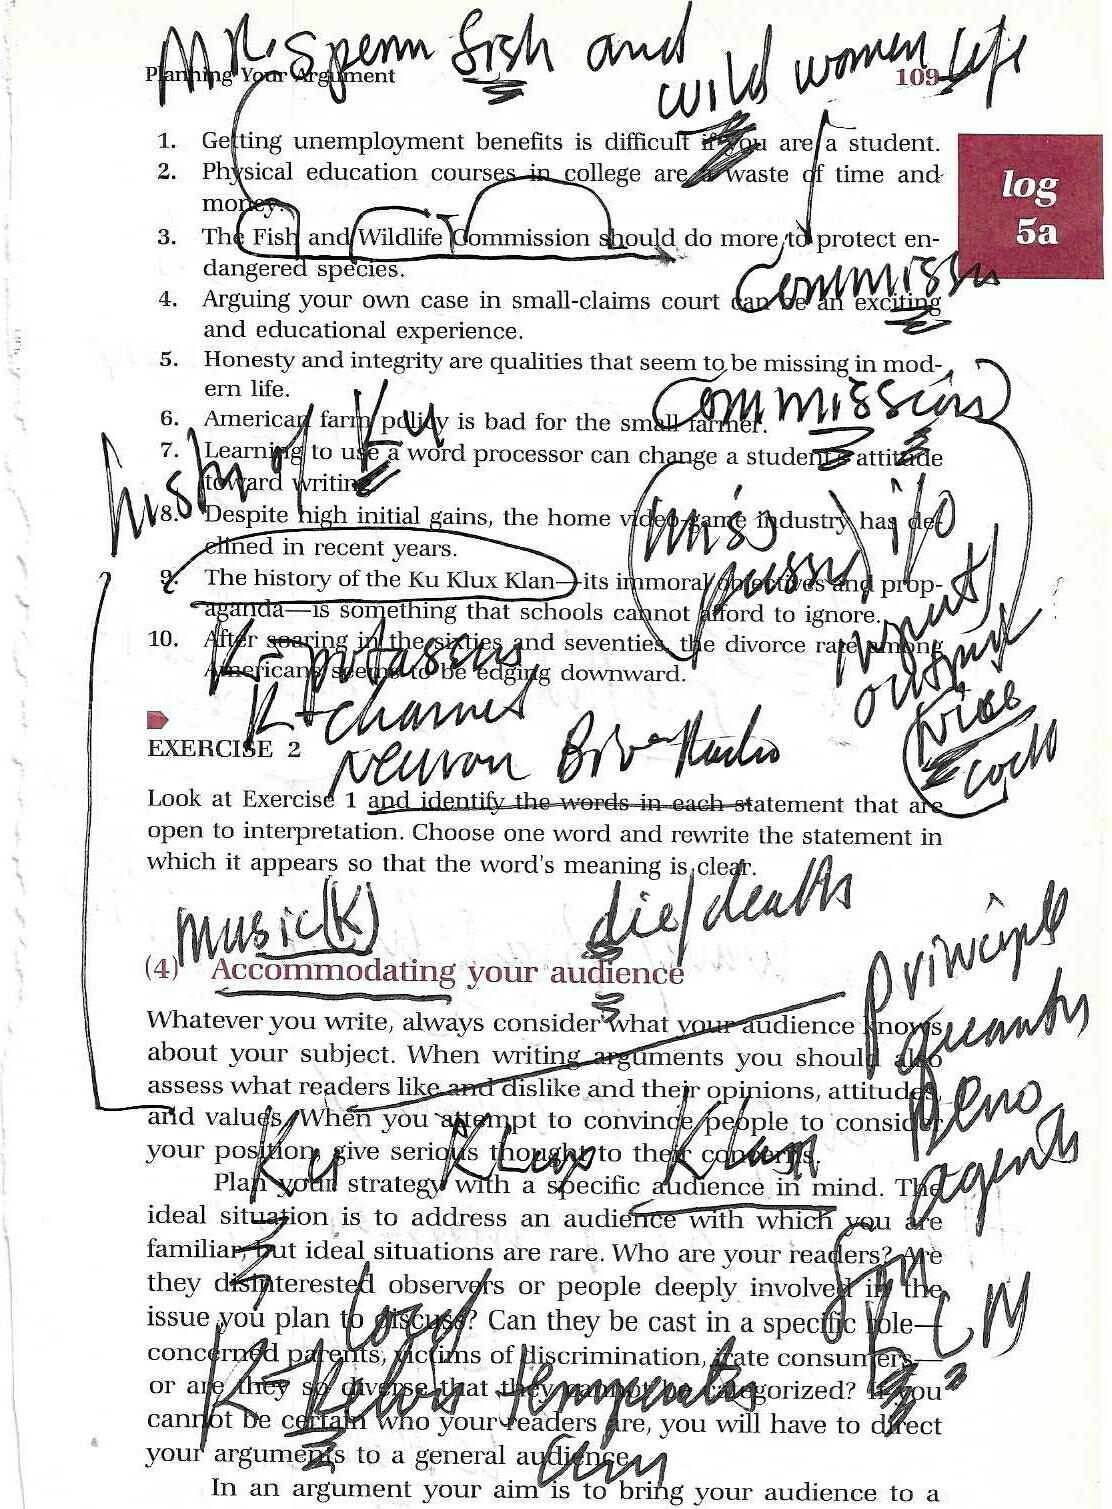 MR. Sperm Fish and
wild women Life
Planning Your Argument 109
log
5a
1. Getting unemployment benefits is difficult if you are a student.
2. Physical education courses in college are a waste of time and
money.
3. The Fish and Wildlife Commission should do more to protect en-
dangered species.
Commissn
4. Arguing your own case in small-claims court can be an exciting
and educational experience.
5. Honesty and integrity are qualities that seem to be missing in mod-
ern life.
Commission
6. American farm policy is bad for the small farmer.
Ku
7. Learning to use a word processor can change a student's attitude
toward writing.
8. Despite high initial gains, the home video-game industry has de-
clined in recent years.
miss
i/o
9. The history of the Ku Klux Klan—its immoral objectives and prop-
aganda—is something that schools cannot afford to ignore.
input
output
10. After soaring in the sixties and seventies, the divorce rate among
Americans seems to be edging downward.
K = 
K+
EXERCISE 2
neuron
Look at Exercise 1 and identify the words in each statement that are
open to interpretation. Choose one word and rewrite the statement in
which it appears so that the word's meaning is clear.
music(K)
die/deaths
(4) Accommodating your audience
Principle
Whatever you write, always consider what your audience knows
about your subject. When writing arguments you should also
assess what readers like and dislike and their opinions, attitudes,
and values. When you attempt to convince people to consider
your position, give serious thought to their concerns.
Ku Klux Klan
agents
Plan your strategy with a specific audience in mind. The
ideal situation is to address an audience with which you are
familiar, but ideal situations are rare. Who are your readers? Are
they disinterested observers or people deeply involved in the
issue you plan to discuss? Can they be cast in a specific role—
Lord
concerned parents, victims of discrimination, irate consumers—
or are they so diverse that they cannot be categorized? If you
K = Kelvin
cannot be certain who your readers are, you will have to direct
your arguments to a general audience.
In an argument your aim is to bring your audience to a